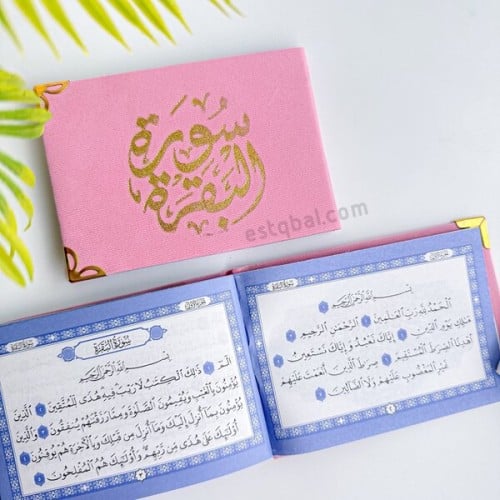 سورة
البقرة
estqbal.com
بِسْمِ اللَّهِ الرَّحْمَٰنِ الرَّحِيمِ
الْحَمْدُ لِلَّهِ رَبِّ الْعَالَمِينَ ٢ الرَّحْمَٰنِ الرَّحِيمِ ٣
مَالِكِ يَوْمِ الدِّينِ ٤ إِيَّاكَ نَعْبُدُ وَإِيَّاكَ نَسْتَعِينُ ٥
اهْدِنَا الصِّرَاطَ الْمُسْتَقِيمَ ٦ صِرَاطَ الَّذِينَ أَنْعَمْتَ عَلَيْهِمْ
غَيْرِ الْمَغْضُوبِ عَلَيْهِمْ وَلَا الضَّالِّينَ ٧
٢
سُورَةُ الْبَقَرَةِ
بِسْمِ اللَّهِ الرَّحْمَٰنِ الرَّحِيمِ
الم ١ ذَٰلِكَ الْكِتَابُ لَا رَيْبَ فِيهِ هُدًى لِلْمُتَّقِينَ ٢ الَّذِينَ
يُؤْمِنُونَ بِالْغَيْبِ وَيُقِيمُونَ الصَّلَوٰةَ وَمِمَّا رَزَقْنَاهُمْ يُنْفِقُونَ ٣ وَالَّذِينَ
يُؤْمِنُونَ بِمَا أُنْزِلَ إِلَيْكَ وَمَا أُنْزِلَ مِنْ قَبْلِكَ وَبِالْآخِرَةِ هُمْ يُوقِنُونَ ٤
أُولَٰئِكَ عَلَىٰ هُدًى مِنْ رَبِّهِمْ وَأُولَٰئِكَ هُمُ الْمُفْلِحُونَ ٥
٣